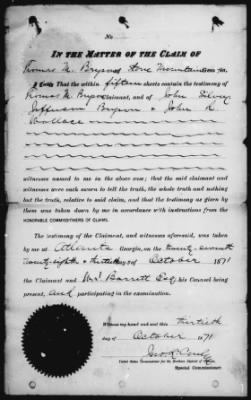 No
IN THE MATTER OF THE CLAIM OF
Thomas M. Bryson of Stone Mountain
I Certify That the within fifteen sheets contain the testimony of
Thomas M. Bryson Claimant, and of John Silvey
Jefferson Bryson & John R.
Wallace
witnesses named to me in the above case; that the said claimant and
witnesses were each sworn to tell the truth, the whole truth and nothing
but the truth, relative to said claim, and that the testimony as given by
them was taken down by me in accordance with instructions from the
HONORABLE COMMISSIONERS OF CLAIMS.
The testimony of the Claimant, and witnesses aforesaid, was taken
by me at Atlanta Georgia, on the twenty-seventh
twenty-eighth & thirtieth day of October 1871
the Claimant and Wm Barrett Esq his Counsel being
present, and participating in the examination.
Witness my hand and seal this thirtieth
day of October 1871
Special Commissioner.